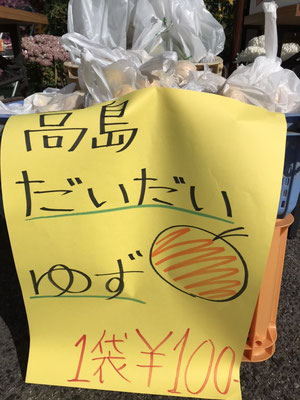 高島
だいだい
ゆず
1袋¥100-